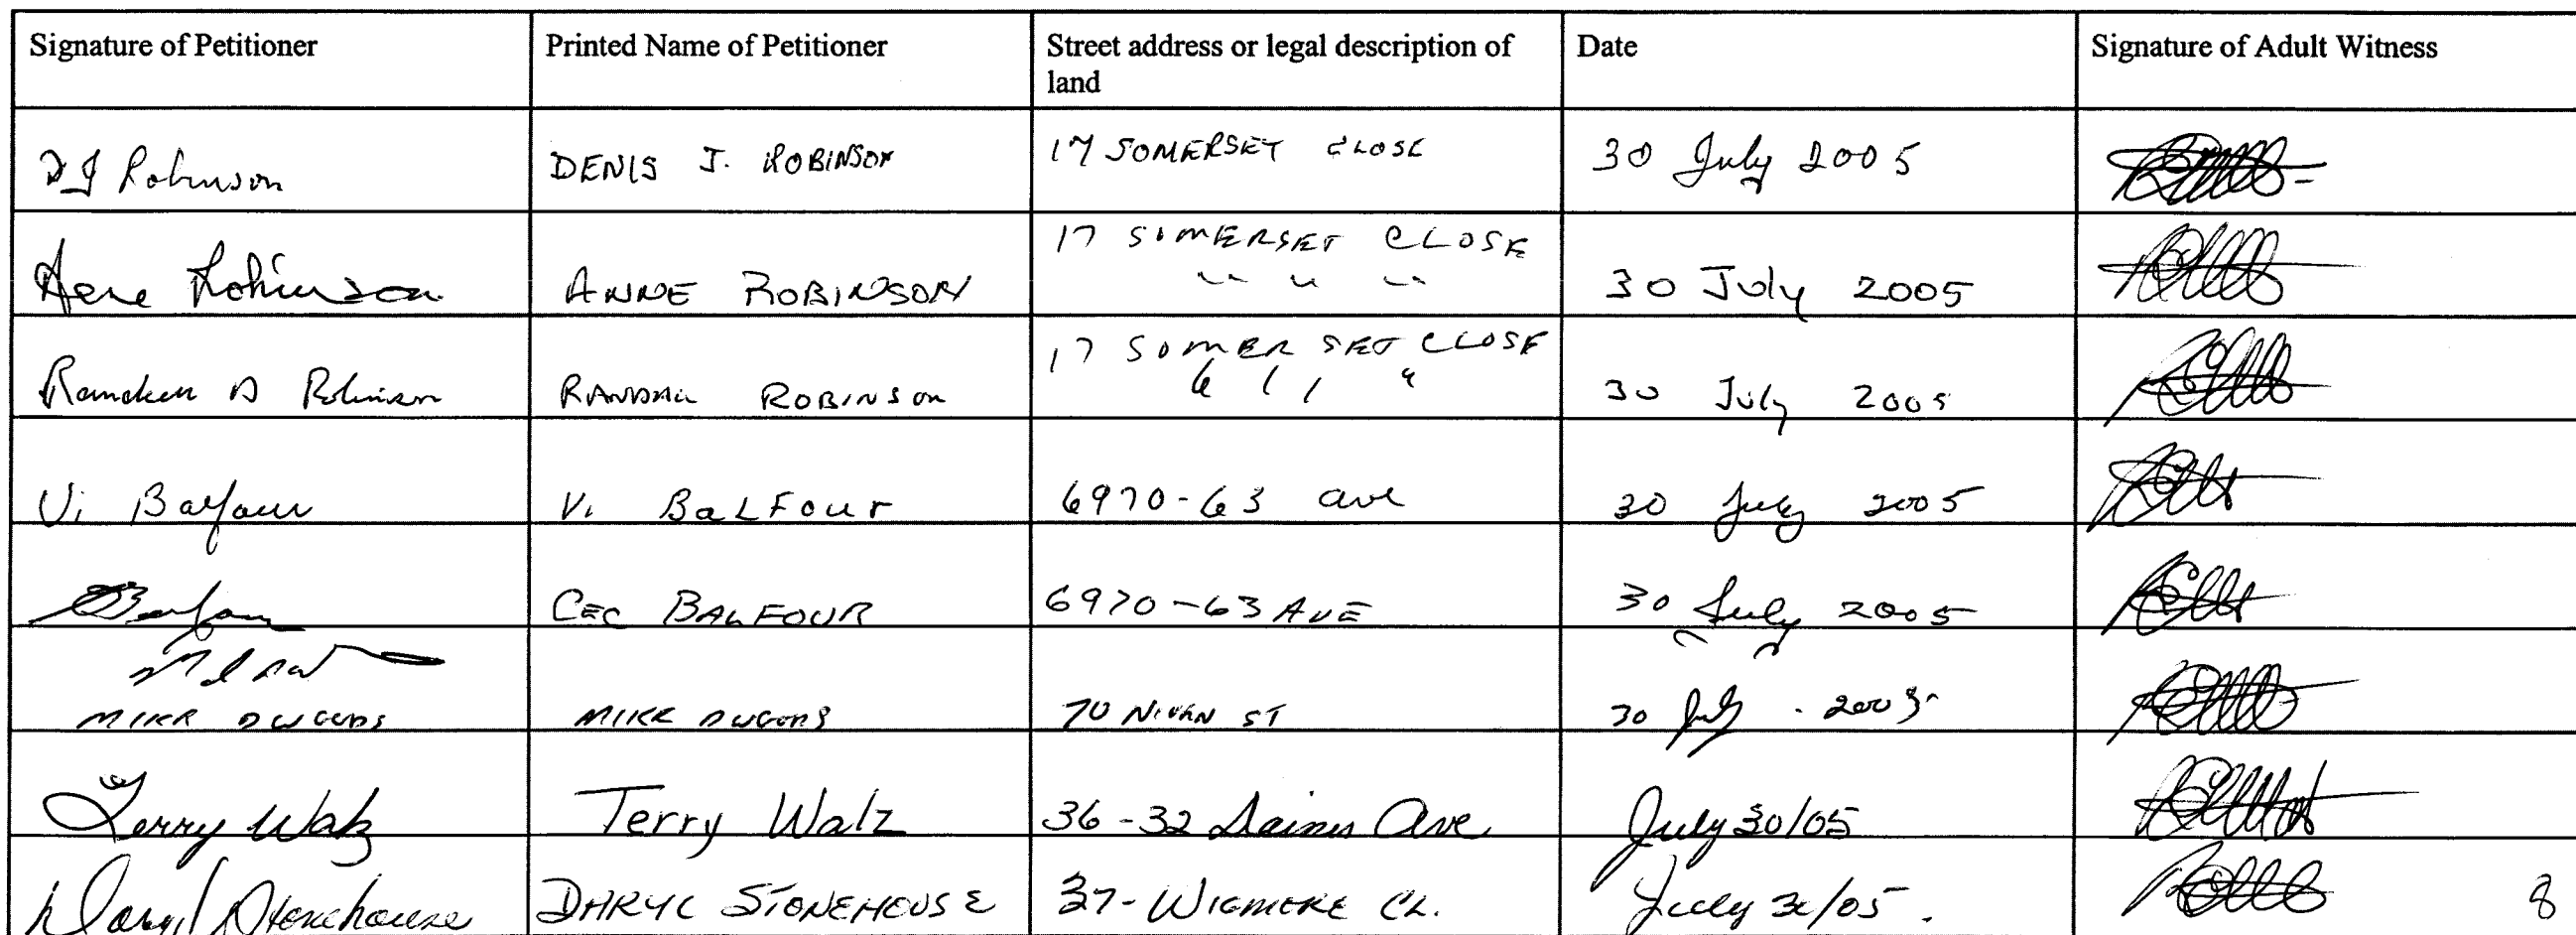 Signature of Petitioner
Printed Name of Petitioner
Street address or legal description of
land
Date
Signature of Adult Witness
DJ Robinson
DENIS J. ROBINSON
17 SOMERSET CLOSE
30 July 2005
Anne Robinson
ANNE ROBINSON
17 SOMERSET CLOSE
" " "
30 July 2005
Randall D Robinson
RANDALL ROBINSON
17 SOMERSET CLOSE
30 July 2005
Vi Balfour
Vi BALFour
6970-63 ave
30 July 2005
Balfour
CEC BALFOUR
6970-63 AVE
30 July 2005
MIKE
MIKE
70 NIVEN ST
30 July 2005
Terry Walz
Terry Walz
36-32 Daines Ave
July 30/05
Daryl Stonehouse
DARYL STONEHOUSE
37-WIGMORE CL.
July 30/05.
8